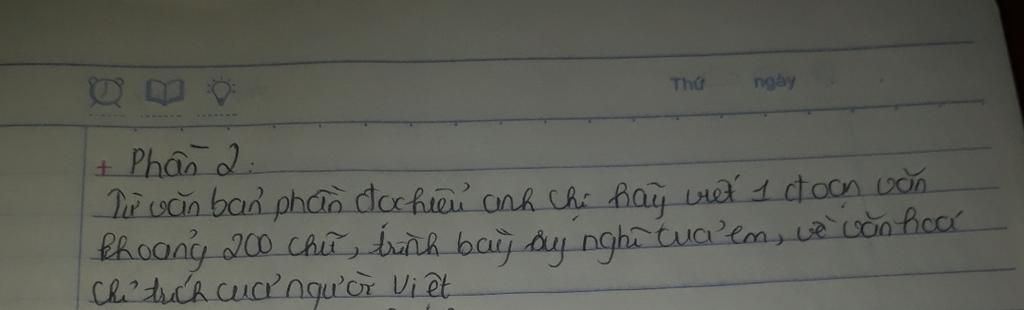 Thứ ngày
+ Phần 2:
Từ văn bản phần đọc hiểu anh chị hãy viết 1 đoạn văn
khoảng 200 chữ, trình bày suy nghĩ của em, về văn hoá
chỉ trích của người Việt